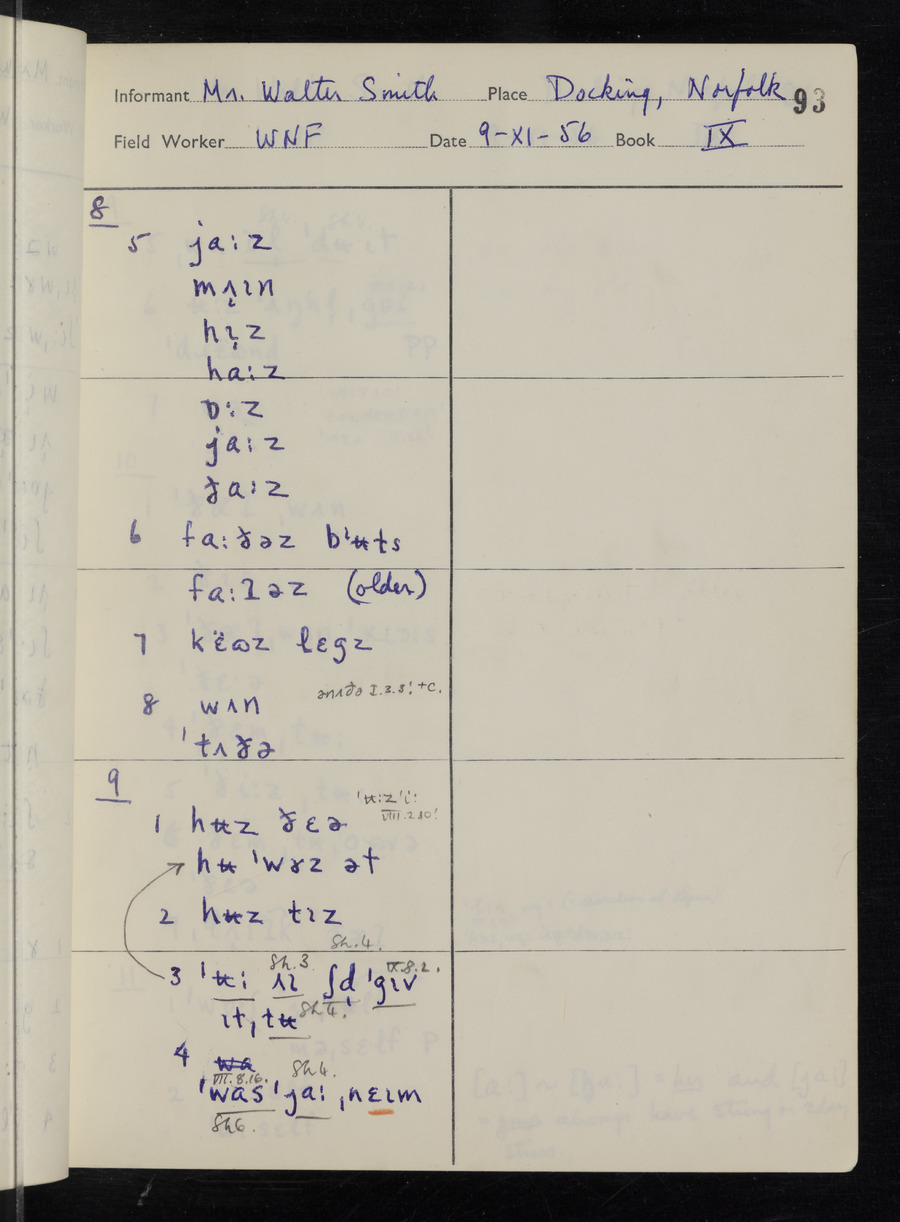 Informant Mr. Walter Smith Place Docking, Norfolk 93
Field Worker WNF Date 9-XI-56 Book IX
8
5 jaːz
mʌ̜ɪn
hɪ̜z
haːz
ɒːz
jaːz
ðaːz
6 faːðəz bˈʉts
faːləz (older)
7 këɷz lɛgz
8 wʌn I.3.3! +c.
ˈtʌðə
9
ˈʉːzˈiː
1 hʉz ðɛə VIII.2.10!
hʉ ˈwɤz ət
2 hʉz tɪz
Sh.4.
3 ˈʉː ʌɪ ʃd ˈgɪv Sh.3 IX.8.2.
ɪt, tʉ Sh4!
4 wa
VIII.8.16. Sh4.
ˈwas ˈjaː ˌnɛɪm
Sh6.